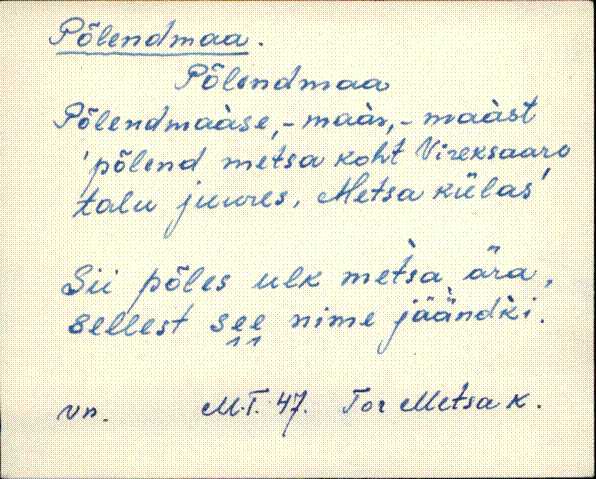 Põlendmaa.
Põlendmaa
Põlendmaàse, -maàs, -maàst
'põlend metsa koht Vireksaare
talu juures, Metsa külas'
Sii põles ulk mètsa ära,
sellest see nime jäändki.
vn. M.T. 47. Tor Metsa k.